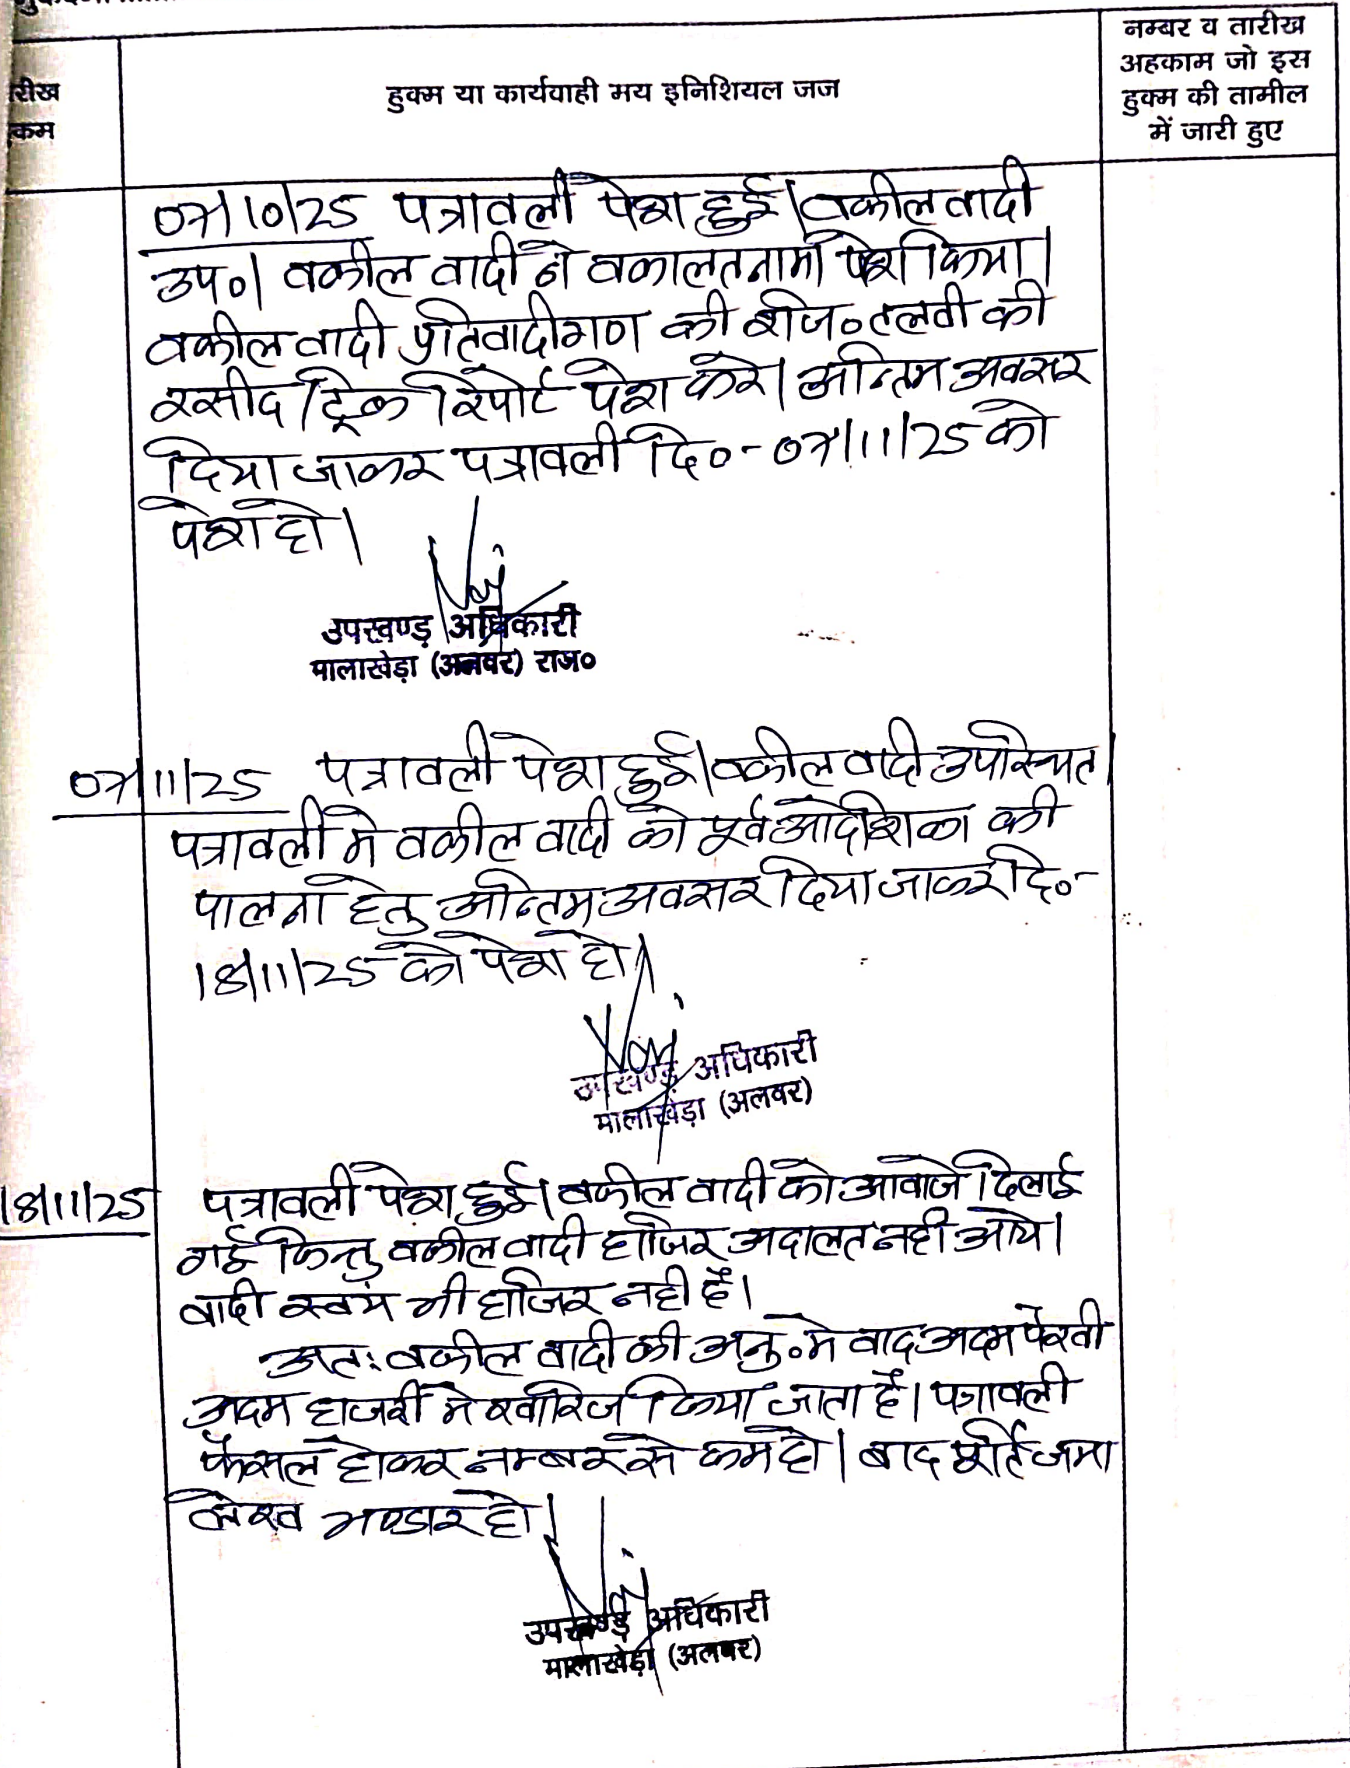 रीख
कम
हुक्म या कार्यवाही मय इनिशियल जज
नम्बर व तारीख
अहकाम जो इस
हुक्म की तामील
में जारी हुए
07/10/25 पत्रावली पेश हुई। वकील वादी
उप०। वकील वादी ने वकालतनामा पेश किया।
वकील वादी प्रतिवादीगण की रजि० तलवी की
रसीद/ट्रेक रिपोर्ट पेश करे। अन्तिम अवसर
दिया जाकर पत्रावली दि०-07/11/25 को
पेश हो।
उपखण्ड़ अधिकारी
मालाखेड़ा (अलवर) राज०
07/11/25 पत्रावली पेश हुई। वकील वादी उपस्थित।
पत्रावली मे वकील वादी को पूर्व आदेशिका की
पालना हेतु अन्तिम अवसर दिया जाकर दि०-
18/11/25 को पेश हो।
उपखण्ड़ अधिकारी
मालाखेड़ा (अलवर)
18/11/25 पत्रावली पेश हुई। वकील वादी को आवाजे दिलाई
गई किन्तु वकील वादी हाजिर अदालत नही आये।
वादी स्वयं भी हाजिर नही है।
अतः वकील वादी की अनु० मे वाद अदम पेरवी
अदम हाजरी मे खारिज किया जाता है। पत्रावली
फैसल होकर नम्बर से कम हो। बाद पूर्ति जमा
लेख भण्डार हो।
उपखण्ड़ अधिकारी
मालाखेड़ा (अलवर)